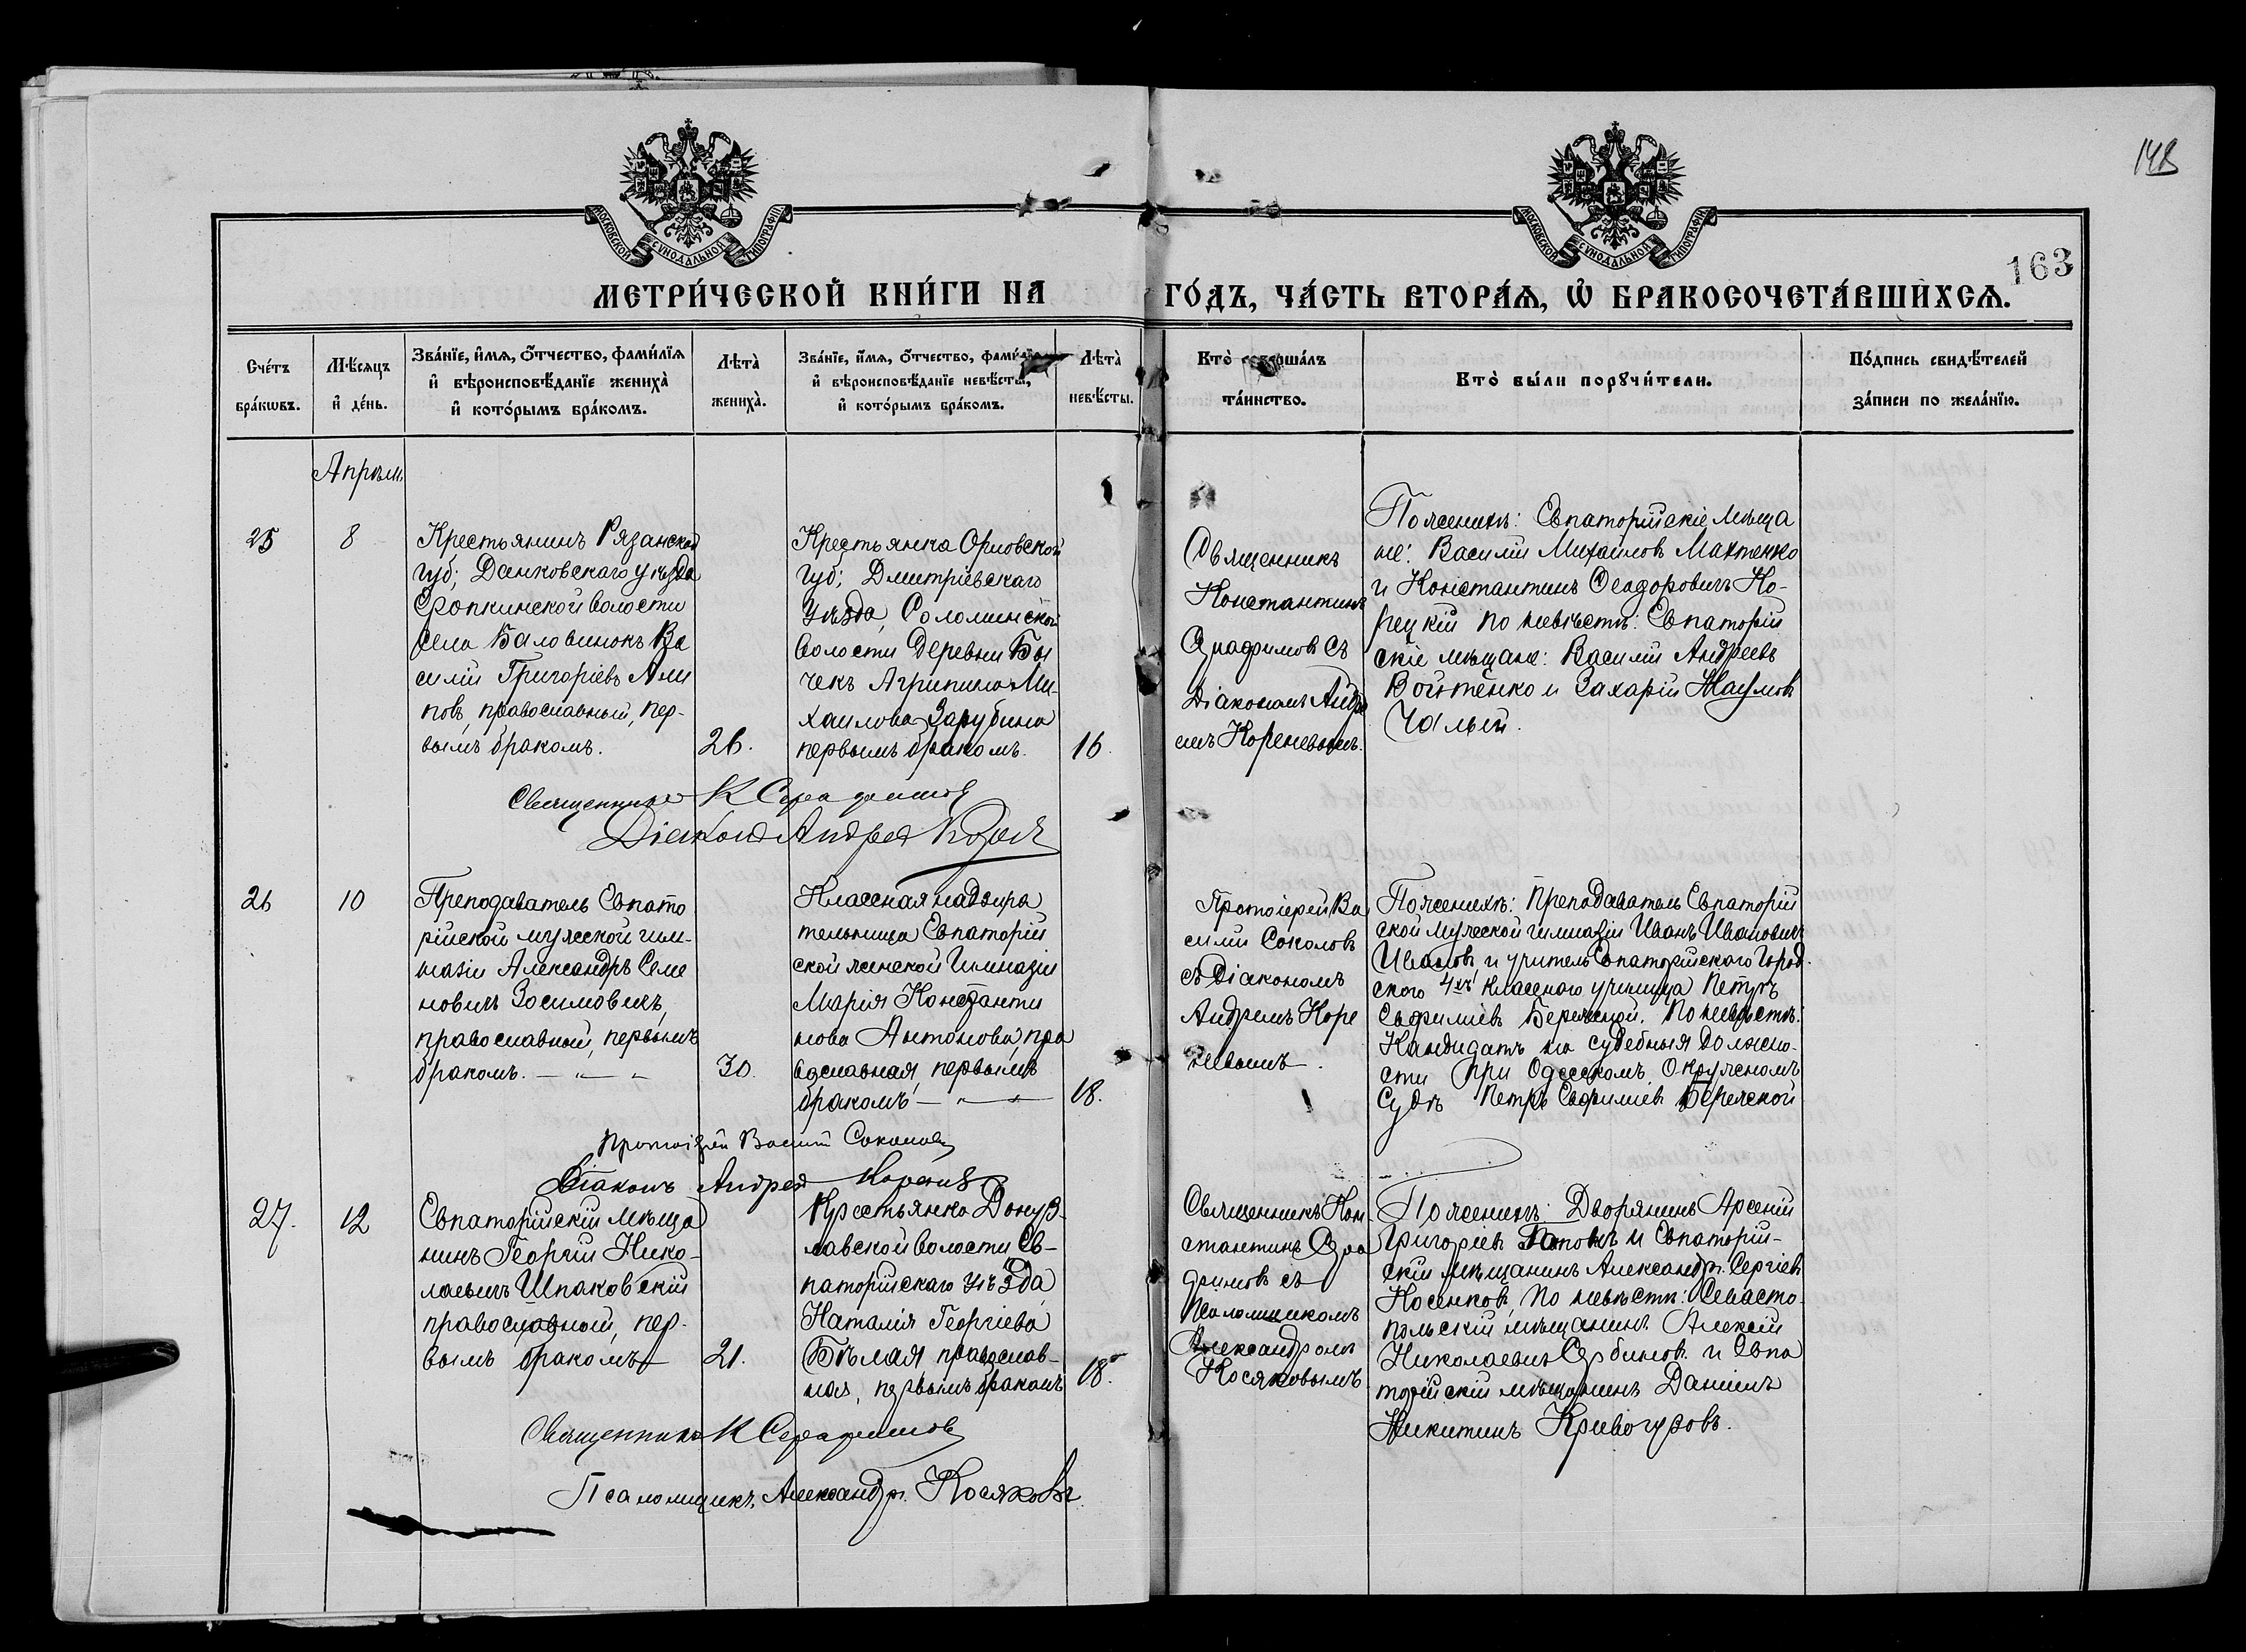 148
163
МОСКОВСКОЙ СѴНОДАЛЬНОЙ ТИПОГРАФІИ
МОСКОВСКОЙ СѴНОДАЛЬНОЙ ТИПОГРАФІИ
МЕТРИ́ЧЕСКОЙ КНИ́ГИ НА ГО́ДЪ, ЧА́СТЬ ВТОРА́Ѧ, Ѡ҆ БРАКОСОЧЕТА́ВШИХСѦ.
Сче́тъ
бра́кѡвъ.
Мѣ́сяцъ
и҆ де́нь.
Зва́нїе, и҆́мѧ, ѻ҆́тчество, фами́лїѧ
и҆ вѣроисповѣ́данїе жениха̀
и҆ кото́рымъ бра́комъ.
Лѣ́та̀
жениха̀.
Зва́нїе, и҆́мѧ, ѻ҆́тчество, фами́лїѧ
и҆ вѣроисповѣ́данїе невѣ́сты,
и҆ кото́рымъ бра́комъ.
Лѣ́та̀
невѣ́сты.
Кто̀ соверша́лъ
та́инство.
Кто̀ бы́ли порꙋчи́тели.
По́дпись свидѣ́телей
за́писи по жела́нїю.
Апрѣль.
25
8
Крестьянинъ Рязанской
губ; Данковскаго уѣзда
Еропкинской волости
села Баловинокъ Ва
силій Григоріевъ Али
повъ, православный, пер-
вымъ бракомъ.
26.
Крестьянка Орловской
губ; Дмитріевскаго
уѣзда, Соломинской
волости деревни Бы
чекъ Агрипина Ми-
хаилова Зарубина
первымъ бракомъ.
16
Священникъ
Константинъ
Серафимовъ съ
Діакономъ Андре
емъ Кореневымъ.
По женихѣ: Евпаторійскіе мѣща
не: Василій Михаиловъ Махтенко
и Константинъ Феодоровичъ Ко-
рецкій по невѣстѣ: Евпаторій
скіе мѣщане: Василій Андреевъ
Войтенко и Захарій Наумовъ
Чалый.
Священникъ К Серафимовъ
Діаконъ Андрей
26
10
Преподаватель Евпато
рійской мужской гим-
назіи Александръ Семе
новичъ Зосимовичъ,
православный, первымъ
бракомъ. — „ — „
30.
Классная надзира
тельница Евпаторій
ской женской Гимназіи
Марія Константи
нова Антонова, пра
вославная, первымъ
бракомъ — „ — „ —
18.
Протоіерей Ва
силій Соколовъ
съ Діакономъ
Андреемъ Коре
невымъ.
По женихѣ: Преподаватель Евпаторій
ской мужской гимназіи Иванъ Ивановичъ
Ивановъ и учитель Евпаторійскаго Город
ского 4хъ классного училища Петръ
Евфиміевъ Бережной. По невѣстѣ:
Кандидатъ на судебныя должно-
сти при Одесскомъ Окружномъ
Судѣ Петръ Евфиміевъ Бережной
Протоіерей Василій Соколовъ
Діаконъ Андрей Кореневъ
27.
12
Евпаторійскій мѣща
нинъ Георгій Нико-
лаевичъ Шпаковскій
православный, пер-
вымъ бракомъ
21.
Крестьянка Донуз-
лавской волости Ев-
паторійскаго уѣзда
Наталія Георгіева
Бѣлая православ-
ная, первымъ бракомъ
18.
Священникъ Кон-
стантинъ Сера
фимовъ съ
Псаломщикомъ
Александромъ
Косяковымъ
По женихѣ: Дворянинъ Арсеній
Григоріевъ Поповъ и Евпаторій-
скій мѣщанинъ Александръ Сергіевъ
Носенковъ, по невѣстѣ: Севасто-
польскій мѣщанинъ Алексій
Николаевичъ Сербиновъ и Евпа
торійскій мѣщанинъ Даніилъ
Никитинъ Кривогузовъ.
Священникъ К Серафимовъ
Псаломщикъ Александръ Косяковъ